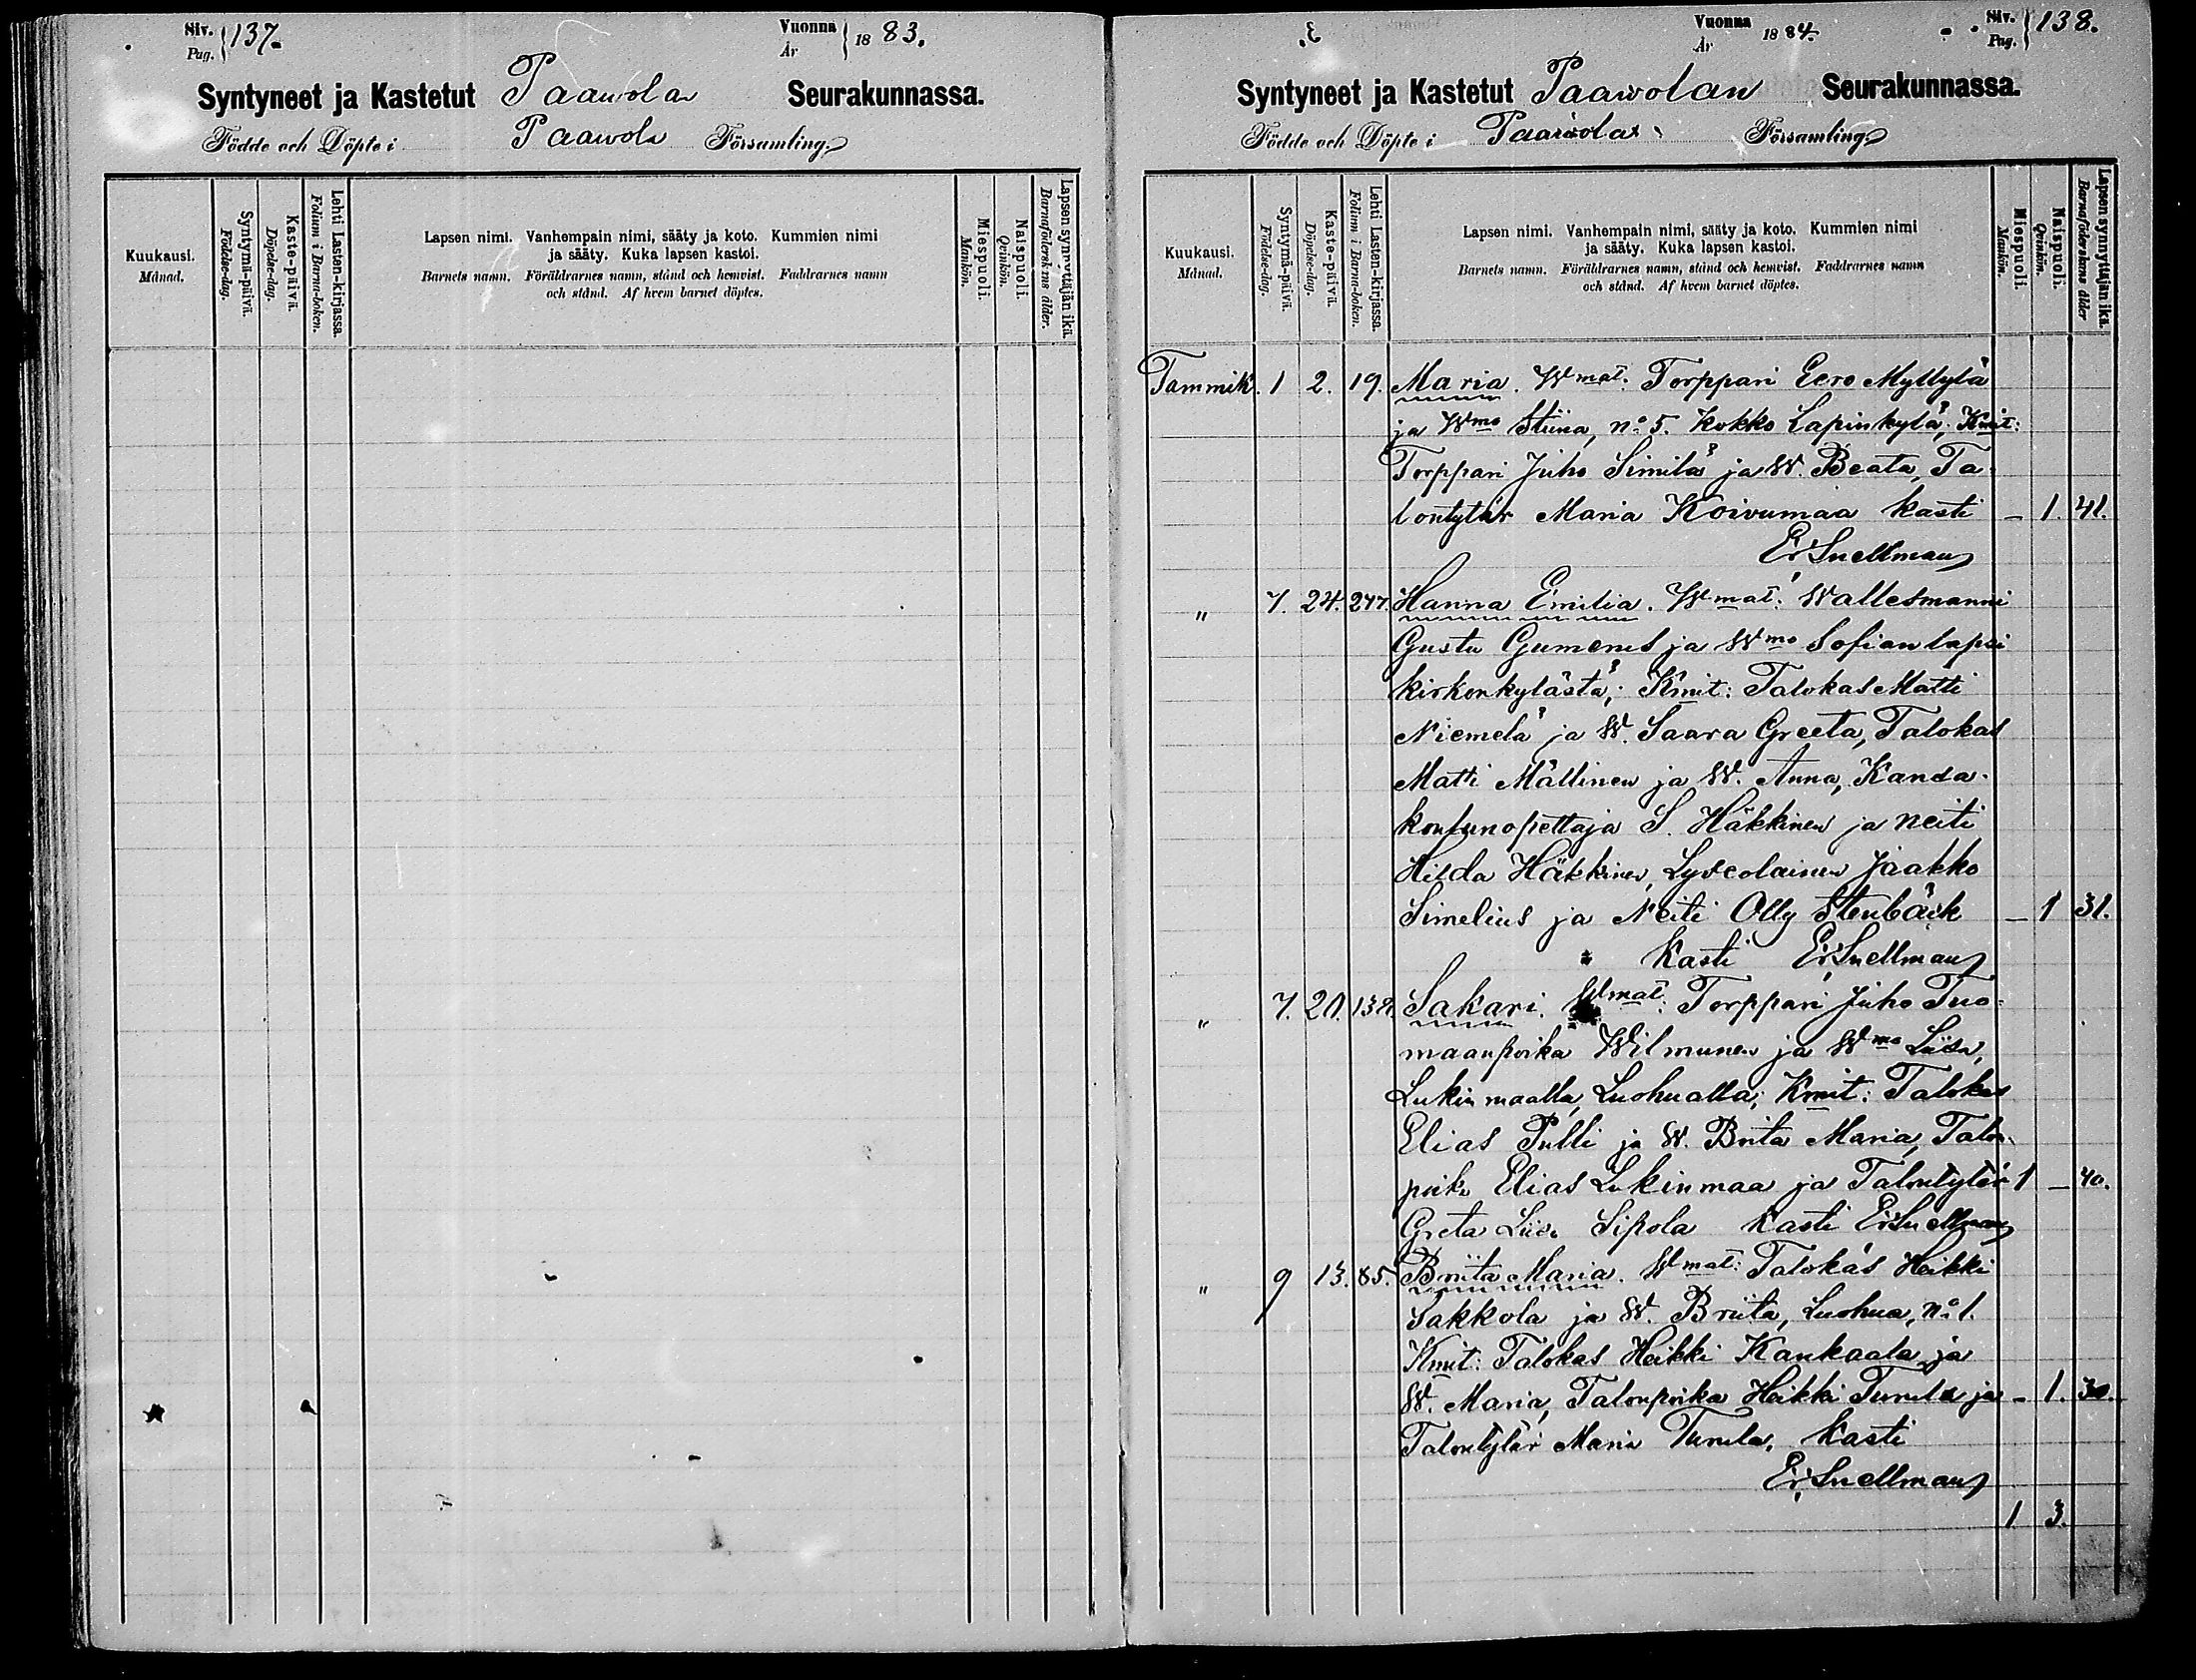 Siv. Pag. 137.
Vuonna År 1883.
Syntyneet ja Kastetut Paawola Seurakunnassa.
Födde och Döpte i Paawola Församling
Kuukausi. Månad.
Syntymä-päivä. Födelse-dag.
Kaste-päivä. Döpelse-dag.
Lehti Lasten-kirjassa. Folium i Barna-boken.
Lapsen nimi. Vanhempain nimi, sääty ja koto. Kummien nimi
ja sääty. Kuka lapsen kastoi.
Barnets namn. Föräldrarnes namn, stånd och hemvist. Faddrarnes namn
och stånd. Af hvem barnet döptes.
Miespuoli. Mankön.
Naispuoli. Qvinkön.
Lapsen synnyttäjän ikä. Barnaföderskans ålder.
Vuonna År 1884.
Siv. Pag. 138.
Syntyneet ja Kastetut Paawolan Seurakunnassa.
Födde och Döpte i Paawola Församling
Kuukausi. Månad.
Syntymä-päivä. Födelse-dag.
Kaste-päivä. Döpelse-dag.
Lehti Lasten-kirjassa. Folium i Barna-boken.
Lapsen nimi. Vanhempain nimi, sääty ja koto. Kummien nimi
ja sääty. Kuka lapsen kastoi.
Barnets namn. Föräldrarnes namn, stånd och hemvist. Faddrarnes namn
och stånd. Af hvem barnet döptes.
Miespuoli. Mankön.
Naispuoli. Qvinkön.
Lapsen synnyttäjän ikä. Barnaföderskans ålder
Tammik. 1 2. 19. Maria. Wmat: Torppari Eero Myllylä
ja Wmo Stiina, no 5. Kokko Lapinkylä; Kmit:
Torppari Juho Similä ja W. Beata, Ta-
lontytär Maria Koivumaa kasti – 1. 41.
Er. Snellman
" 7. 24. 277. Hanna Emilia. Wmat: Wallesmanni
Gusta Gumerus ja Wmo Sofian lapsi
kirkonkylästä; Kmit: Talokas Matti
Niemelä ja W. Saara Greeta, Talokas
Matti Mällinen ja W. Anna, Kansa-
koulunopettaja S. Häkkinen ja neiti
Hilda Häkkinen, Lyseolainen Jaakko
Simelius ja Neiti Olly Stenbäck – 1 31.
Kasti Er. Snellman
" 7. 20. 138. Sakari. Wmat: Torppari Juho Tuo-
maanpoika Wilmunen ja Wmo Liisa,
Lukinmaalla, Luohualla; Kmit: Talokas
Elias Pulli ja W. Brita Maria, Talon-
poika Elias Lukinmaa ja Talontytär 1 – 40.
Greta Liisa Sipola kasti Er. Snellman
" 9 13. 85. Briita Maria. Wmat: Talokas Heikki
Sakkola ja W. Briita, Luohua, no 1.
Kmit: Talokas Heikki Kankaala ja
W. Maria, Talonpoika Heikki Turula ja – 1. 30.
Talontytär Maria Turula, kasti
Er. Snellman
1 3.